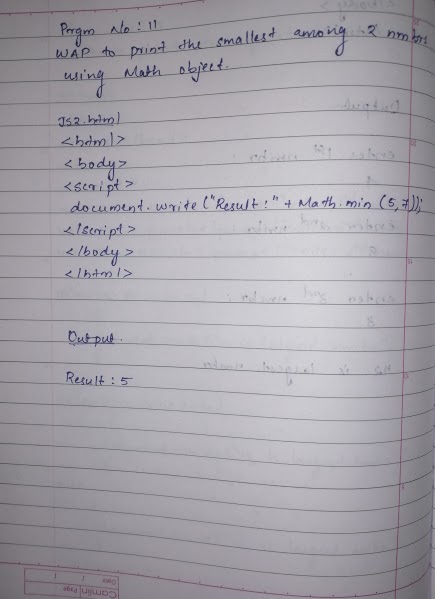 Prgm No : 11
WAP to print the smallest among 2 numbers
using Math object.
JS2.html
<html>
<body>
<script>
document.write ("Result :" + Math.min (5,7));
</script>
</body>
</html>
Output.
Result : 5
Camlin Page
Date / /